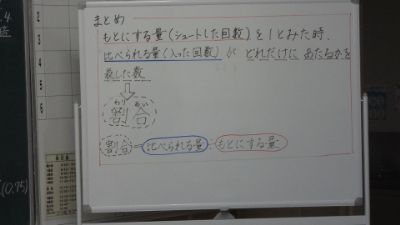 まとめ
もとにする量(シュートした回数)を1とみた時、
比べられる量(入った回数)が どれだけに あたるかを
表した数
わり あい
割合
割合=比べられる量÷もとにする量
2
3
4
5
6
(0.75)